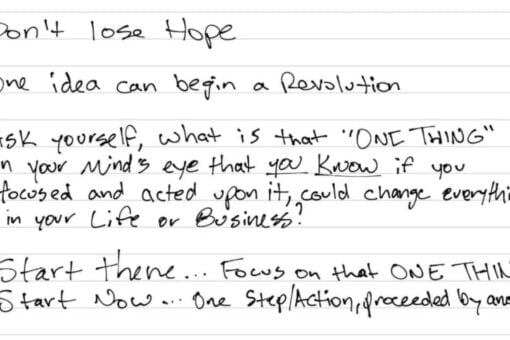 Don't lose Hope
One idea can begin a Revolution
Ask yourself, what is that "ONE THING"
in your Mind's eye that you Know if you
focused and acted upon it, could change everythi
in your Life or Business?
Start there... Focus on that ONE THIN
Start Now... One Step/Action, proceeded by ano